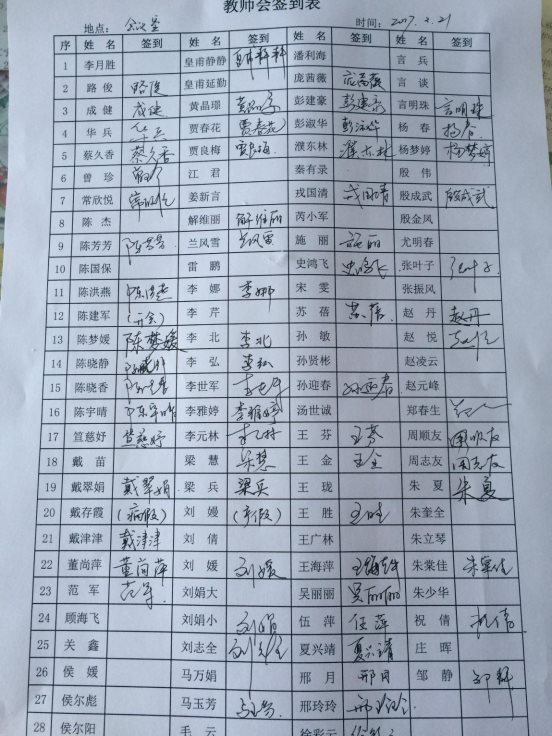 教师会签到表
地点： 会议室 时间： 2017.2.21
序 姓名 签到 姓名 签到 姓名 签到 姓名 签到
1 李月胜 皇甫静静 潘利海 言兵
2 路俊 路俊 皇甫延勤 庞茜薇 言谈
3 成健 成健 黄晶璟 彭建豪 彭建豪 言明珠 言明珠
4 华兵 华兵 贾春花 贾春花 彭淑华 彭淑华 杨春 杨春
5 蔡久香 蔡久香 贾良梅 濮东林 濮东林 杨梦婷 杨梦婷
6 曾珍 曾珍 江君 秦有录 殷伟
7 常欣悦 常欣悦 姜新言 戎国清 戎国清 殷成武 殷成武
8 陈杰 解维丽 解维丽 芮小军 殷金凤
9 陈芳芳 陈芳芳 兰风雪 兰风雪 施丽 施丽 尤明春
10 陈国保 雷鹏 史鸿飞 史鸿飞 张叶子 张叶子
11 陈洪燕 陈洪燕 李娜 李娜 宋雯 张振风
12 陈建军 （开会） 李芹 苏蓓 苏蓓 赵丹 赵丹
13 陈梦媛 陈梦媛 李北 李北 孙敏 赵悦 赵悦
14 陈晓静 陈晓静 李弘 李弘 孙贤彬 赵凌云
15 陈晓香 李世军 李世军 孙迎春 孙迎春 赵元峰
16 陈宇晴 陈宇晴 李雅婷 李雅婷 汤世诚 郑春生
17 笪慈妤 笪慈妤 李元林 王芬 王芬 周顺友 周顺友
18 戴苗 梁慧 梁慧 王金 王金 周志友 周志友
19 戴翠娟 戴翠娟 梁兵 梁兵 王珑 朱夏 朱夏
20 戴存霞 （病假） 刘嫚 （事假） 王胜 王胜 朱奎全
21 戴津津 戴津津 刘倩 王广林 朱立琴
22 董尚萍 董尚萍 刘媛 刘媛 王海萍 王海萍 朱棠佳 朱棠佳
23 范军 范军 刘娟大 吴丽丽 吴丽丽 朱少华
24 顾海飞 刘娟小 刘娟 伍萍 伍萍 祝倩 祝倩
25 关鑫 刘志全 刘志全 夏兴靖 夏兴靖 庄晖
26 侯媛 马万娟 邢月 邢月 邹静 邹静
27 侯尔彪 马玉芳 马玉芳 邢玲玲 邢玲玲
28 侯尔阳 毛云 徐彩云